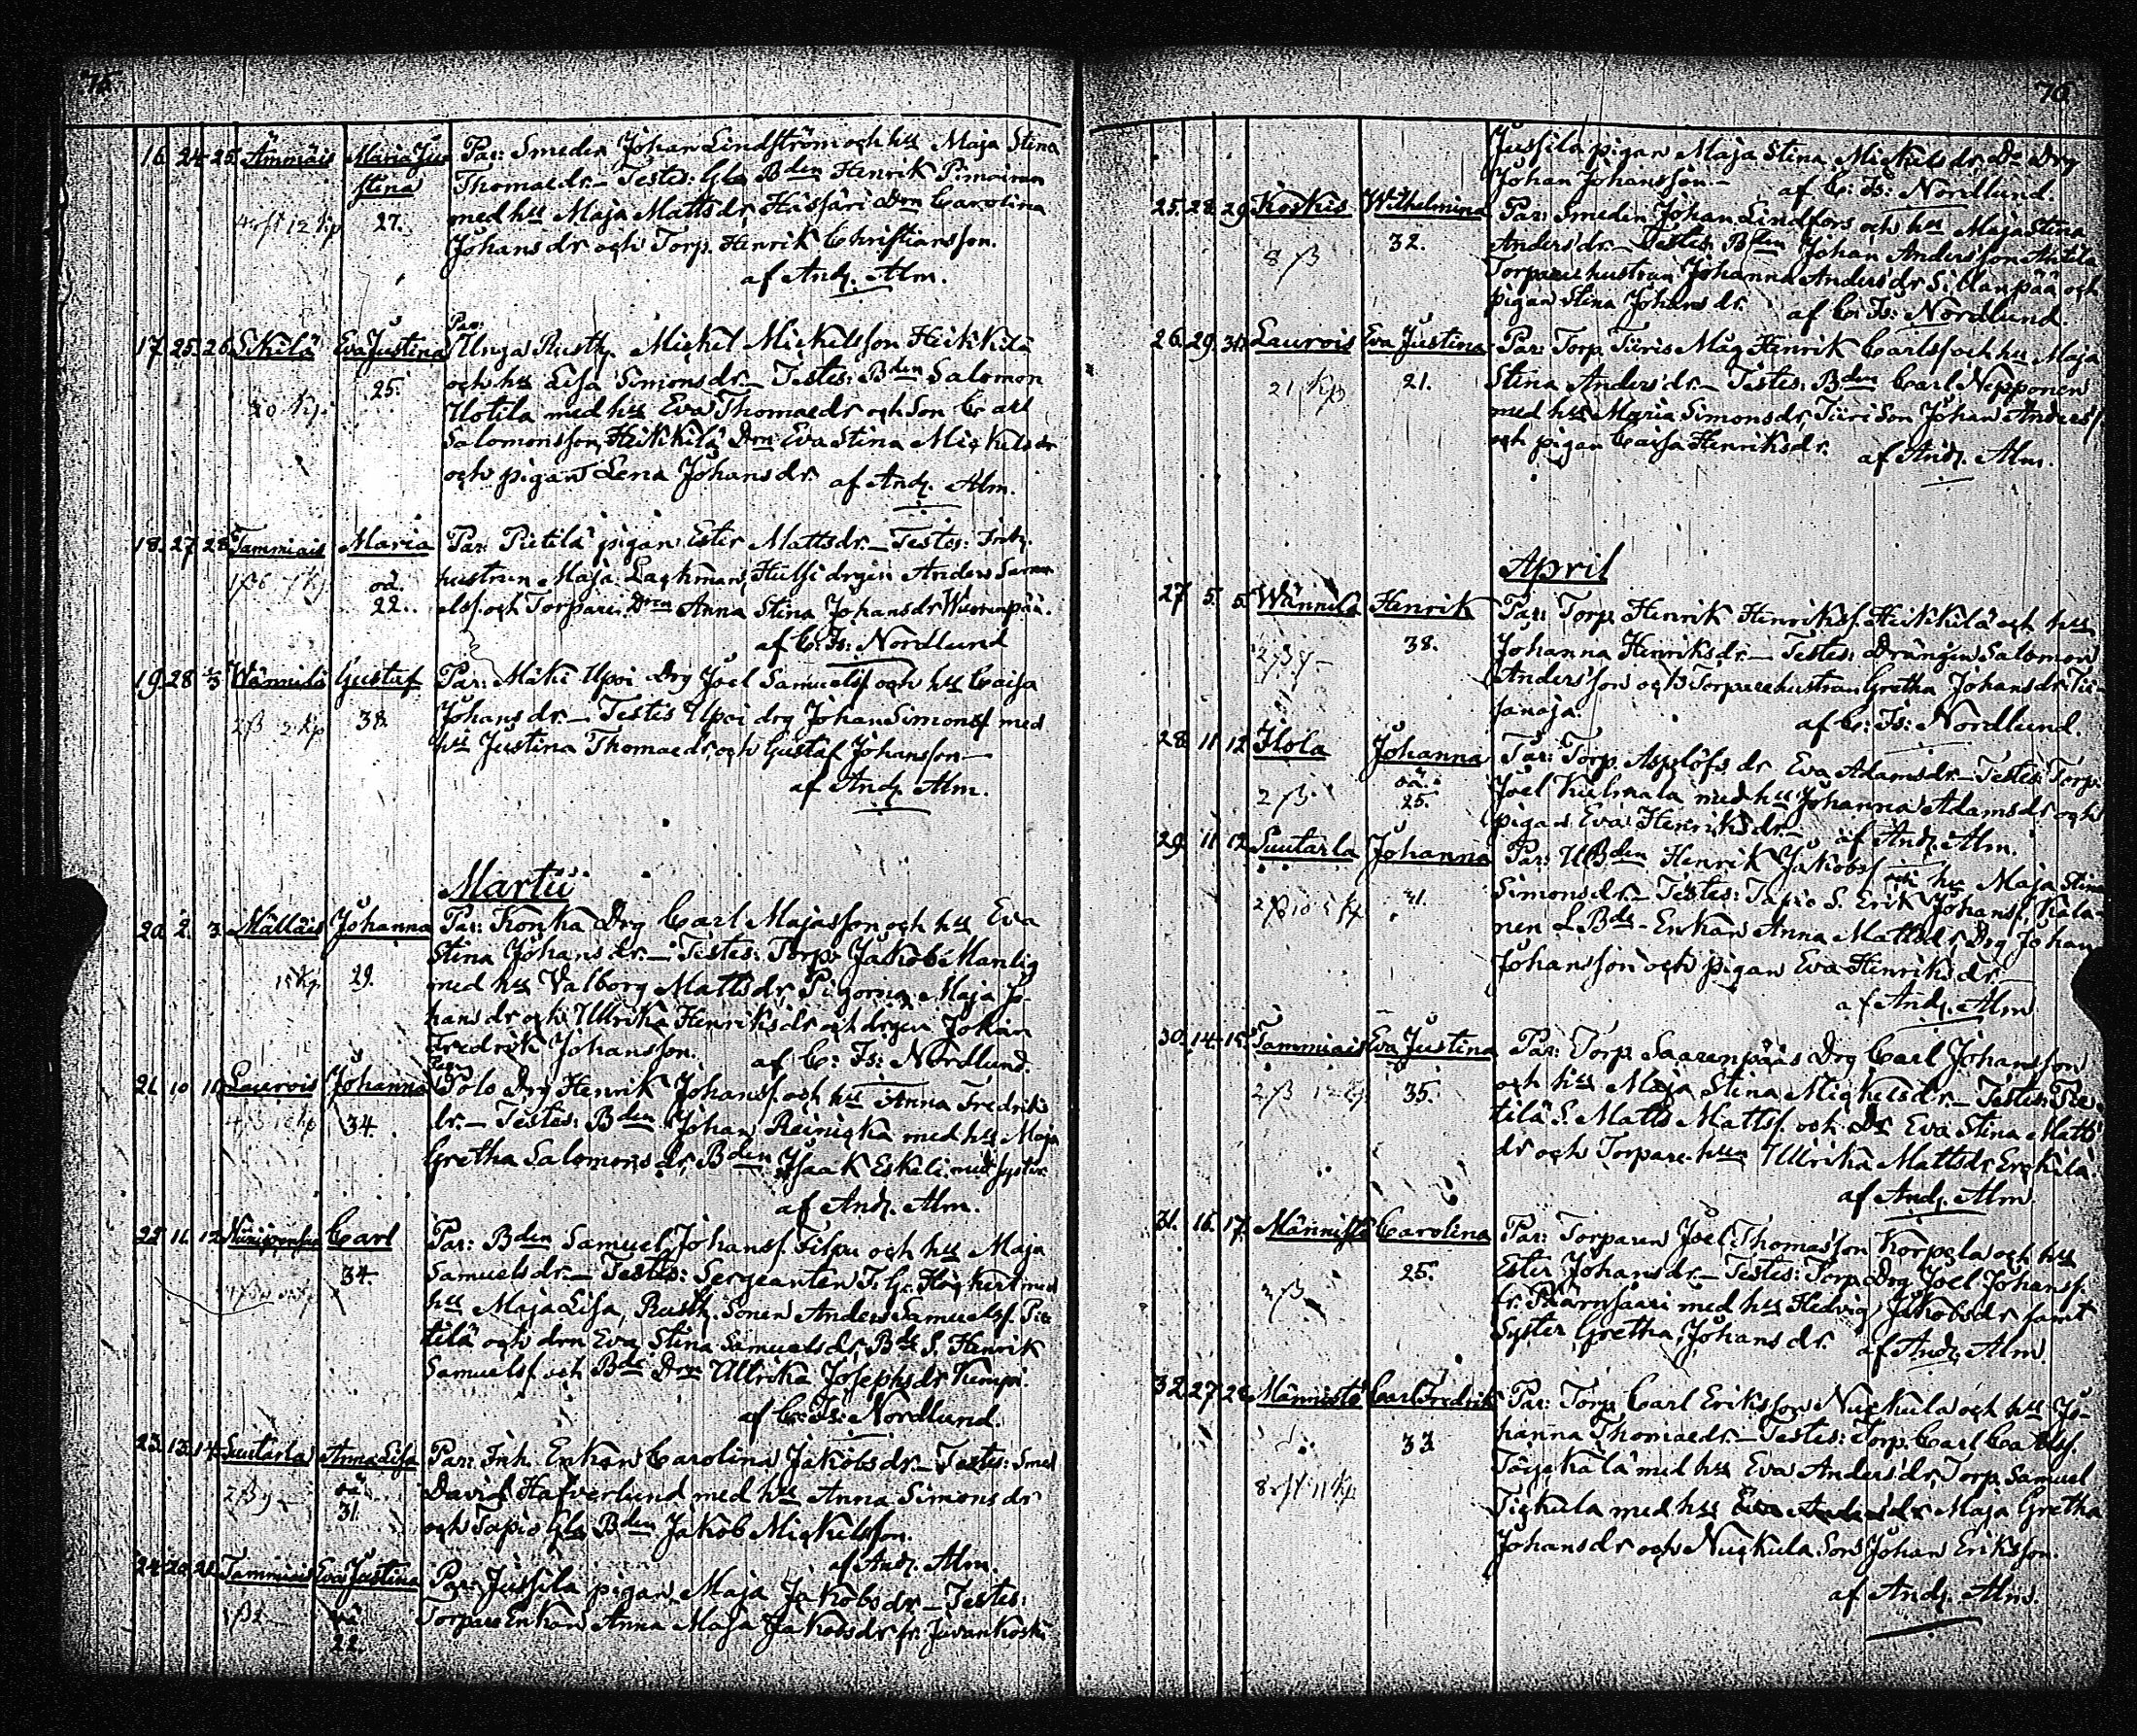 75.
16. 24. 25. Ämmäis Maria Ju- Par: Smeden Johan Lindström och hu Maja Stina
stina Thomaedr. Testes: Gla Bden Henrik
27. med hu Maja Mattsdr Hassari Drn Carolina
Johansdr och Torp. Henrik Christiansson.
af And. Alm.
Par:
17. 25. 26. Sikilä Eva Justina Unga Rusth. Mickel Mickelsson Heikkilä
25. och hu Lisa Simonsdr. Testes: Bden Salomon
20 Kp. Uotila med hu Eva Thomaedr och Son Carl
Salomonsson, Heikkilä Drn Eva Stina Mickelsdr
och pigan Lena Johansdr. af And. Alm.
18. 27. 28. Tammiais Maria Par: Pietilä pigan Ester Mattsdr. Testes: Inh.
oä. hustrun Maja Lackman, Hulsi drgen Anders Samu-
22. elss. och Torpare Drn Anna Stina Johansdr Wuorenpää.
af C: Fs: Nordlund
19. 28 1/3 Wännilä Gustaf Par: Mäki Upoi Drg Joel Samuelss. och hu Caisa
2ß 2 Kp 38. Johansdr. Testes Upoi drg Johan Simonss. med
hu Justina Thomaedr, och Gustaf Johansson
af And. Alm.
Martii
20. 2. 3. Mälläis Johanna Par: Konka Drg Carl Majasson och hu Eva
Stina Johansdr. Testes: Torp. Jakob Manlig
15 Kp. 29. med hu Valborg Mattsdr, Pigorna Maja Jo-
hansdr och Ullrika Henriksdr och drgen Johan
Fredrik Johansson. af C: Fs: Nordlund.
Par:
21. 10 11 Laurois Johanna Polo Drg Henrik Johanss. och hu Anna Fredriks
34. dr. Testes: Bden Johan Reinicka med hu Maja
Gretha Salomonsdr, Bden Isaak Eskeli med syster
af And. Alm.
22 11. 12 Carl Par: Bden Samuel Johanss. Filpu och hu Maja
34. Samuelsdr. Testes: Sergeanten F. G. med
hu Maja Lisa, Rusth. Sonen Anders Samuelss. Pie
tilä och drn Eva Stina Samuelsdr, Bde S. Henrik
Samuelss. och Bde Drn Ullrika Josephsdr Kumpi.
af C: Fs: Nordlund.
23. 13. 14 Suutarla Anna Lisa Par: Inh. Enkan Carolina Jakobsdr. Testes: Smed
oä David Hafverlund med hu Anna Simonsdr
31. och Tapio Gla Bden Jakob Mickelsson.
af And. Alm.
24. 20. 21. Tammiais Eva Justina Par: Jussila pigan Maja Jakobsdr. Testes:
oä Torpare Enkan Anna Maja Jakobsdr fr. Juvankoski
22.
76
Jussila pigan Maja Stina Mickelsdr, Do Drg
Johan Johansson. af C: Fs: Nordlund.
25. 28. 29. Koskis Wilhelmina Par: Smeden Johan Lindfors och hu Maja Stina
8 ß 32. Andersdr. Testes: Bden Johan Andersson Antila
Torpare hustrun Johanna Andersdr Sillanpää och
pigan Stina Johansdr. af C: Fs: Nordlund.
26. 29. 31. Laurois Eva Justina Par: Torp. Türis Måg Henrik Carlss. och hu Maja
21 Kp 21. Stina Andersdr. Testes: Bden Carl Nepponen
med hu Maria Simonsdr, Türi Son Johan Anderss.
och pigan Caisa Henriksdr. af And. Alm.
April
27 5. 5. Wännilä Henrik Par: Torp. Henrik Henrikss. Heikkilä och hu
38. Johanna Henriksdr. Testes: Drängen Salomon
Andersson och Torpare hustrun Gretha Johansdr Tii-
sanoja. af C: Fs: Nordlund.
28. 11 12 Ilola Johanna Par: Torp. Asplöfs dr Eva Adamsdr. Testes: Torp.
2 ß oä. Joel Kulmala med hu Johanna Adamsdr och
25. pigan Eva Henriksdr. af And. Alm.
29. 11 12 Suutarla Johanna Par: UBden Henrik Jakobss. och hu Maja Stina
41. Simonsdr. Testes: Tapio S. Erik Johanss., Kala-
nen L. Bde Enkan Anna Mattsdr Drg Johan
Johansson och pigan Eva Henriksdr.
af And. Alm
30. 14. 15. Tammiais Eva Justina Par: Torp. Saarenpääs Drg Carl Johansson
35. och hu Maja Stina Mickelsdr. Testes: Pie
tilä S. Matts Mattss. och Dr Eva Stina Matts
dr och Torpare hun Ullrika Mattsdr Erckilä.
af And. Alm
31. 16. 17. Männistö Carolina Par: Torparen Joel Thomasson Korpela och hu
25. Ester Johansdr. Testes: Torp. Drg Joel Johanss.
fr. Päärnsaari med hu Hedvig Jakobsdr samt
Syster Gretha Johansdr. af And. Alm.
32. 27. 28 Männistö Carl Fredrik Par: Torp. Carl Eriksson Nuckula och hu Jo-
33. hanna Thomaedr. Testes: Torp. Carl Carlss.
med hu Eva Andersdr, Torp. Samuel
Tickula med hu Eva Andersdr Maja Gretha
Johansdr och Nuckula Son Johan Eriksson.
af And. Alm.